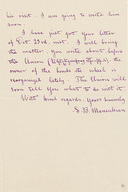 his visit. I am going to write him
soon.
I have just got your letter
of Oct 23rd. inst. I will bring
the matter, you write about before
the Union
owner of the books etc which is
reorganised lately. The Union will
soon tell you what to do with it.
With kind regards, Yours Sincerely